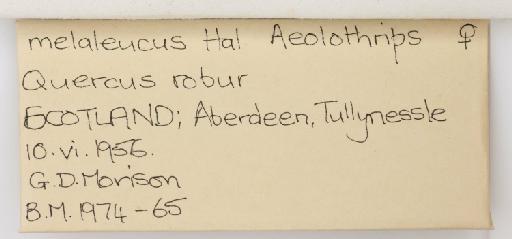 melaleucus Hal Aeolothrips ♀
Quercus robur
SCOTLAND; Aberdeen, Tullynessle
10.vi.1956.
G.D.Morison
B.M.1974-65